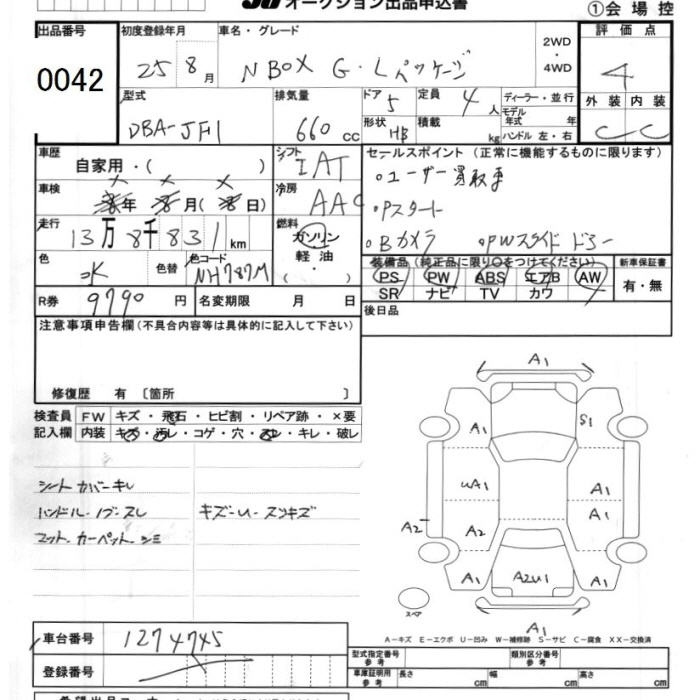 オークション出品申込書
①会場控
出品番号
0042
初度登録年月
25 8月
車名・グレード
N BOX G・Lパッケージ
2WD
・
4WD
評価点
4
外装 内装
C C
型式
DBA-JF1
排気量
660 cc
ドア 5
形状 HB
定員 4 人
積載 kg
ディーラー・並行
モデル年式 年
ハンドル 左・右
車歴
自家用・( )
シフト
IAT
セールスポイント(正常に機能するものに限ります)
。ユーザー買取車
。Pスタート
。Bカメラ 。PWスライドドアー
車検
年 月( 日)
冷房
AAC
走行
13万8千831km
燃料
ガソリン
軽油・
( )
色
色替
色コード
NH787M
装備品(純正品に限り○をつけてください)
PS PW ABS エアB AW
SR ナビ TV カワ
新車保証書
有・無
R券
9790円
名変期限 月 日
後日品
注意事項申告欄(不具合内容等は具体的に記入して下さい)
修復歴 有〔箇所 〕
検査員
記入欄
FW キズ・飛石・ヒビ割・リペア跡・×要
内装 キズ・汚レ・コゲ・穴・スレ・キレ・破レ
シートカバーキレ
ハンドル・ノブ・スレ キズ-U-スリキズ
マット・カーペットシミ
A1
A1 S1
UA1 A1
A1
A2 A2
A1 A2U1 A1
スペア
A1
A-キズ E-エクボ U-凹み W-補修跡 S-サビ C-腐食 XX-交換済
車台番号
1274745
登録番号
型式指定番号
参考
類別区分番号
参考
車庫証明用
参考
長さ cm 幅 cm 高さ cm